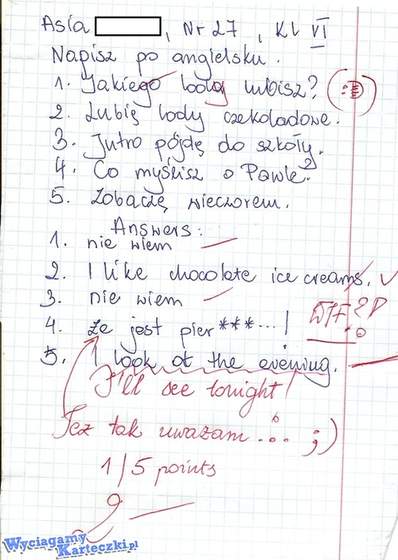 Asia , Nr 27 , KL VI
Napisz po angielsku.
1. Jakiego loda lubisz?
2. Lubię lody czekoladowe.
3. Jutro pójdę do szkoły.
4. Co myślisz o Pawle?
5. Zobaczę wieczorem.
Answers:
1. nie wiem
2. I like chocolate ice creams. ✓
3. nie wiem
WTF??
4. że jest pier***...!
5. I look at the evening.
I'll see tonight!
Też tak uważam... ;)
1/5 points
Wyciagamy
Karteczki.pl